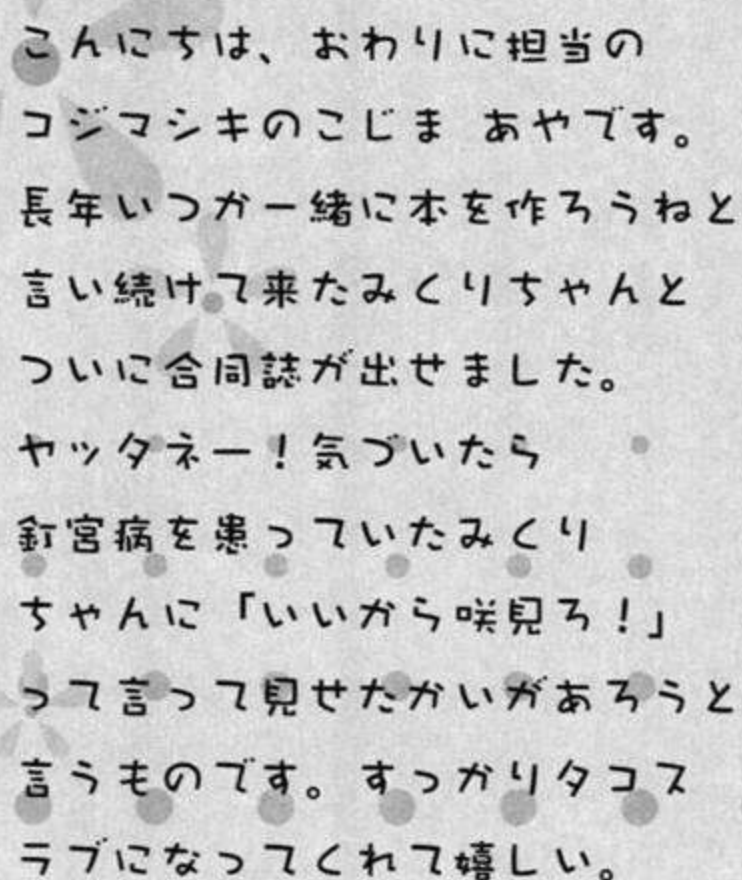 こんにちは、おわりに担当の
コジマシキのこじま あやです。
長年いつか一緒に本を作ろうねと
言い続けて来たみくりちゃんと
ついに合同誌が出せました。
ヤッタネー！気づいたら
釘宮病を患っていたみくり
ちゃんに「いいから咲見ろ！」
って言って見せたかいがあろうと
言うものです。すっかりタコス
ラブになってくれて嬉しい。